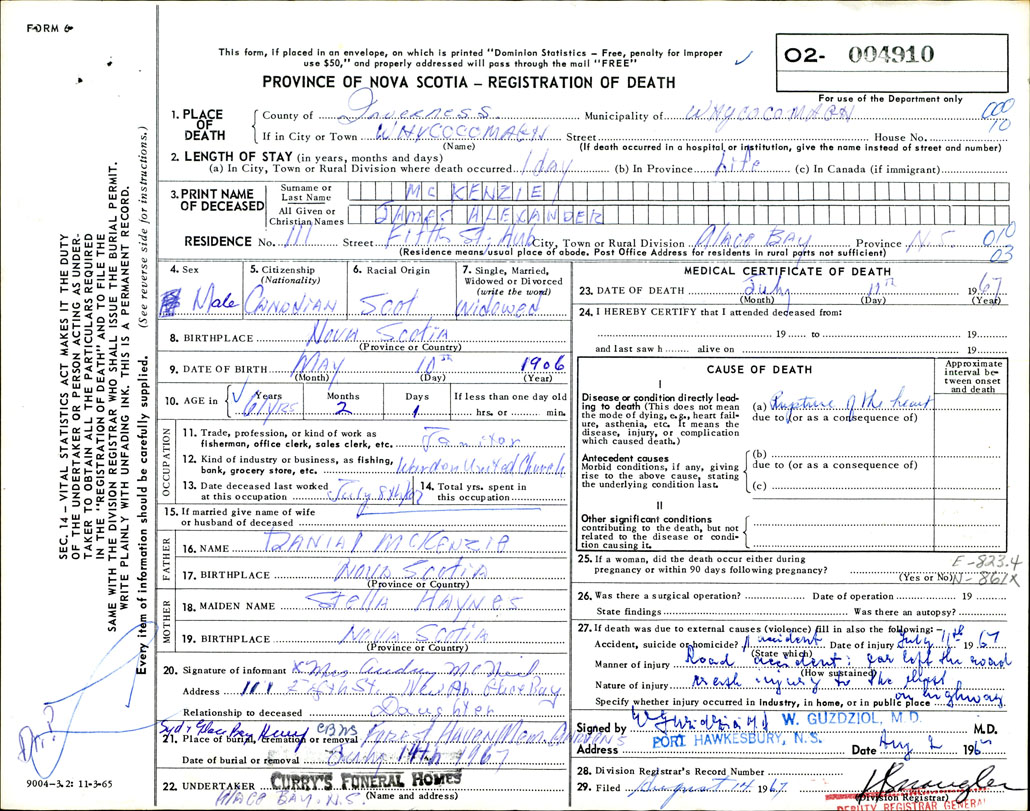 FORM 6
This form, if placed in an envelope, on which is printed "Dominion Statistics – Free, penalty for improper
use $50," and properly addressed will pass through the mail "FREE"
O2- 004910
PROVINCE OF NOVA SCOTIA – REGISTRATION OF DEATH
For use of the Department only
1. PLACE OF DEATH
County of Inverness Municipality of WHYCOCOMAGH 000
If in City or Town WHYCOCOMAGH Street House No. 10
(Name) (If death occurred in a hospital or institution, give the name instead of street and number)
2. LENGTH OF STAY (in years, months and days)
(a) In City, Town or Rural Division where death occurred 1 day (b) In Province Life (c) In Canada (if immigrant)
3. PRINT NAME OF DECEASED
Surname or Last Name McKENZIE
All Given or Christian Names JAMES ALEXANDER
RESIDENCE No. 111 Street Fifth St, Hub City, Town or Rural Division Glace BAY Province N.S 010
(Residence means usual place of abode. Post Office Address for residents in rural parts not sufficient) 03
4. Sex Male
5. Citizenship (Nationality) CANADIAN
6. Racial Origin Scot
7. Single, Married, Widowed or Divorced (write the word) WIDOWED
8. BIRTHPLACE NOVA SCOTIA
(Province or Country)
9. DATE OF BIRTH MAY 10th 1906
(Month) (Day) (Year)
10. AGE in Years 61 YRS Months 2 Days 1 If less than one day old hrs. or min.
OCCUPATION
11. Trade, profession, or kind of work as fisherman, office clerk, sales clerk, etc. Janitor
12. Kind of industry or business, as fishing, bank, grocery store, etc. Warden United Church
13. Date deceased last worked at this occupation July 8th/67
14. Total yrs. spent in this occupation
15. If married give name of wife or husband of deceased
FATHER
16. NAME DANIAL McKENZIE
17. BIRTHPLACE NOVA SCOTIA
(Province or Country)
MOTHER
18. MAIDEN NAME Stella HAYNES
19. BIRTHPLACE NOVA SCOTIA
(Province or Country)
20. Signature of informant x Mrs Audrey
Address
Relationship to deceased Daughter
21. Place of burial, cremation or removal Forest Haven Mem. Gardens
Date of burial or removal 14th 1967
22. UNDERTAKER CURRY'S FUNERAL HOMES
GLACE BAY. N.S. (Name and address)
MEDICAL CERTIFICATE OF DEATH
23. DATE OF DEATH July 11th 1967
(Month) (Day) (Year)
24. I HEREBY CERTIFY that I attended deceased from:
19 to 19
and last saw h alive on 19
CAUSE OF DEATH
Approximate interval between onset and death
I
Disease or condition directly leading to death (This does not mean the mode of dying, e.g., heart failure, asthenia, etc. It means the disease, injury, or complication which caused death.)
(a) Rupture of the heart
due to (or as a consequence of)
Antecedent causes
Morbid conditions, if any, giving rise to the above cause, stating the underlying condition last.
(b)
due to (or as a consequence of)
(c)
II
Other significant conditions
contributing to the death, but not related to the disease or condition causing it.
25. If a woman, did the death occur either during pregnancy or within 90 days following pregnancy? E-823.4
(Yes or No) N-861X
26. Was there a surgical operation? Date of operation 19
State findings Was there an autopsy?
27. If death was due to external causes (violence) fill in also the following:
Accident, suicide or homicide? Accident Date of injury July 11th 1967
(State which)
Manner of injury Road accident; car left the road
(How sustained)
Nature of injury crush injury to the chest
Specify whether injury occurred in industry, in home, or in public place on highway
Signed by W. GUZDZIOL, M. D. M.D.
Address PORT HAWKESBURY, N.S. Date Aug 2 1967
28. Division Registrar's Record Number
29. Filed August 14 1967
(Division Registrar)
DEPUTY REGISTRAR GENERAL
SEC. 14 – VITAL STATISTICS ACT MAKES IT THE DUTY
OF THE UNDERTAKER OR PERSON ACTING AS UNDER-
TAKER TO OBTAIN ALL THE PARTICULARS REQUIRED
IN THE "REGISTRATION OF DEATH" AND TO FILE THE
SAME WITH THE DIVISION REGISTRAR WHO SHALL ISSUE THE BURIAL PERMIT.
WRITE PLAINLY WITH UNFADING INK. THIS IS A PERMANENT RECORD.
Every item of information should be carefully supplied. (See reverse side for instructions.)
9004-3.2: 11-3-65